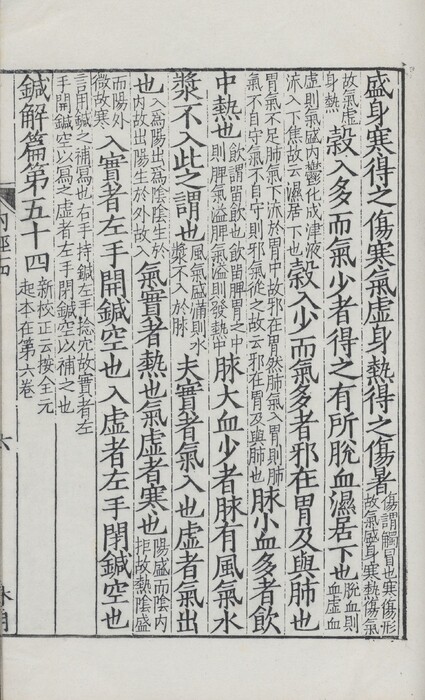 盛身寒得之傷寒氣虛身熱得之傷暑
傷謂觸冒也寒傷形
故氣盛身寒熱傷氣
故氣虛
身熱
榖入多而氣少者得之有所脫血濕居下也
脫血則
血虛血
虛則氣盛內鬱化成津液
流入下焦故云濕居下也
榖入少而氣多者邪在胃及與肺也
氣不足肺氣下流於胃中故邪在胃然肺氣入胃則肺
氣不自守氣不自守則邪氣從之故云邪在胃及與肺也
脉小血多者飲
中熱也
飲謂留飲也飲留脾胃之中
則脾氣溢脾氣溢則發熱中
脉大血少者脉有風氣水
漿不入此之謂也
風氣盛滿則水
漿不入於脉
夫實者氣入也虛者氣出
也
入為陽出為陰陰生於
內故出陽生於外故入
氣實者熱也氣虛者寒也
陽盛而陰內
拒故熱陰盛
而陽外
微故寒
入實者左手開鍼空也入虛者左手閉鍼空也
言用鍼之補寫也右手持鍼左手捻穴故實者左
手開鍼空以寫之虛者左手閉鍼空以補之也
鍼解篇第五十四
新校正云按全元
起本在第六卷
六